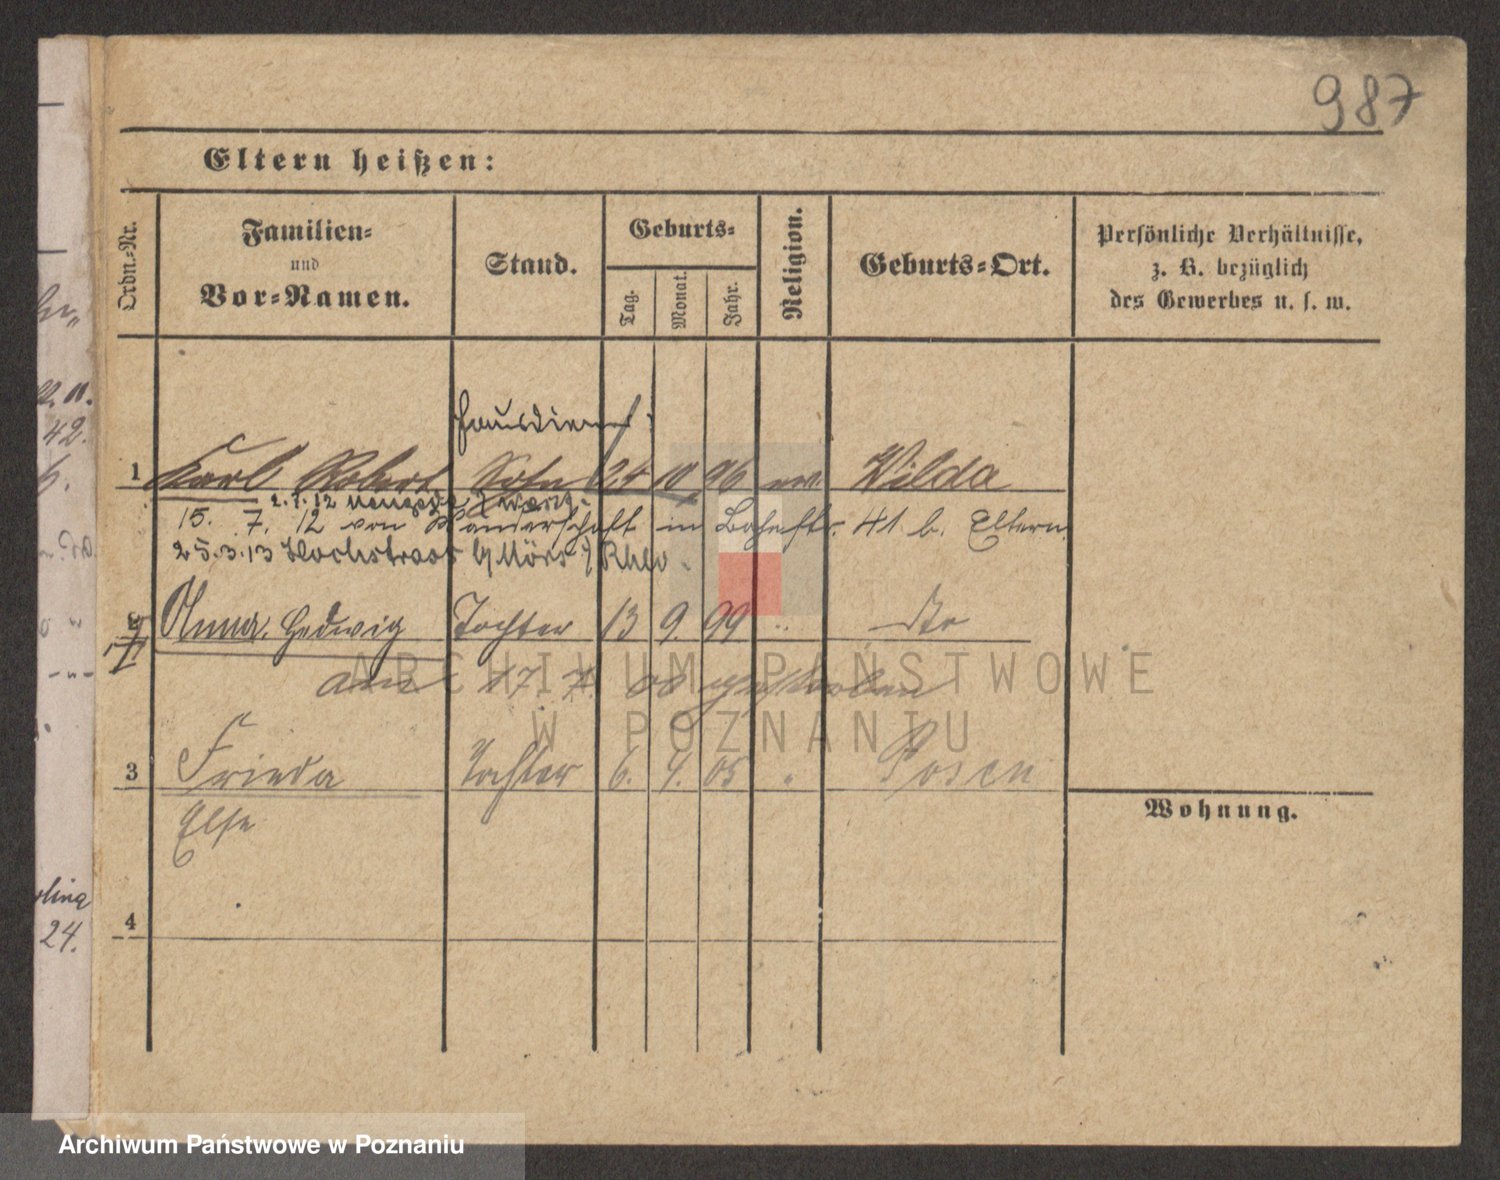 987
Eltern heißen:
Ordn.-Nr.
Familien-
und
Vor-Namen.
Stand.
Geburts-
Tag.
Monat.
Jahr.
Religion.
Geburts-Ort.
Persönliche Verhältnisse,
z. B. bezüglich
des Gewerbes u. s. w.
Hausdiener
1 Karl Robert Sohn 24 10 96 ev. Wilda
2.7.12
15. 7. 12 von Wanderschaft in 41 b. Eltern
25.3.13 Hochstrass b/Mörs Rhld
Anna Hedwig Tochter 13 9. 99 " dto
am 17. 7. 08 gestorben
3 Frieda Tochter 6. 4. 05 " Posen
Else
Wohnung.
4
42.
lina
24.
ARCHIWUM PAŃSTWOWE
W POZNANIU
Archiwum Państwowe w Poznaniu